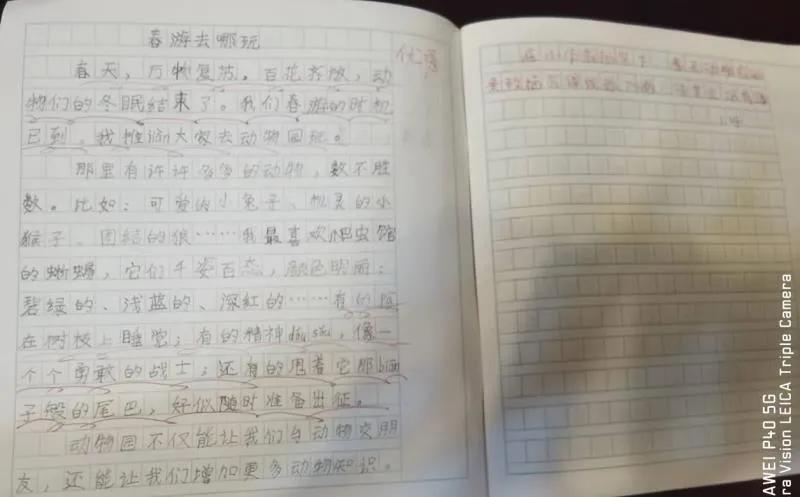 春游去哪玩
春天，万物复苏，百花齐放，动
物们的冬眠结束了。我们春游的时机
已到，我推渐大家去动物园玩。
那里有许许多多的动物，数不胜
数。比如：可爱的小兔子、机灵的小
猴子、团结的狼……我最喜欢爬虫馆
的蜥蜴，它们千姿百态，颜色明丽：
碧绿的、浅蓝的、深红的……有的
在树枝上睡觉；有的精神dǒu sǒu，像一
个个勇敢的战士；还有的甩着它那biān
子般的尾巴，好似随时准备出征。
动物园不仅能让我们与动物交朋
友，还能让我们增加更多动物知识。
优
HUAWEI P40 5G
Ultra Vision LEICA Triple Camera